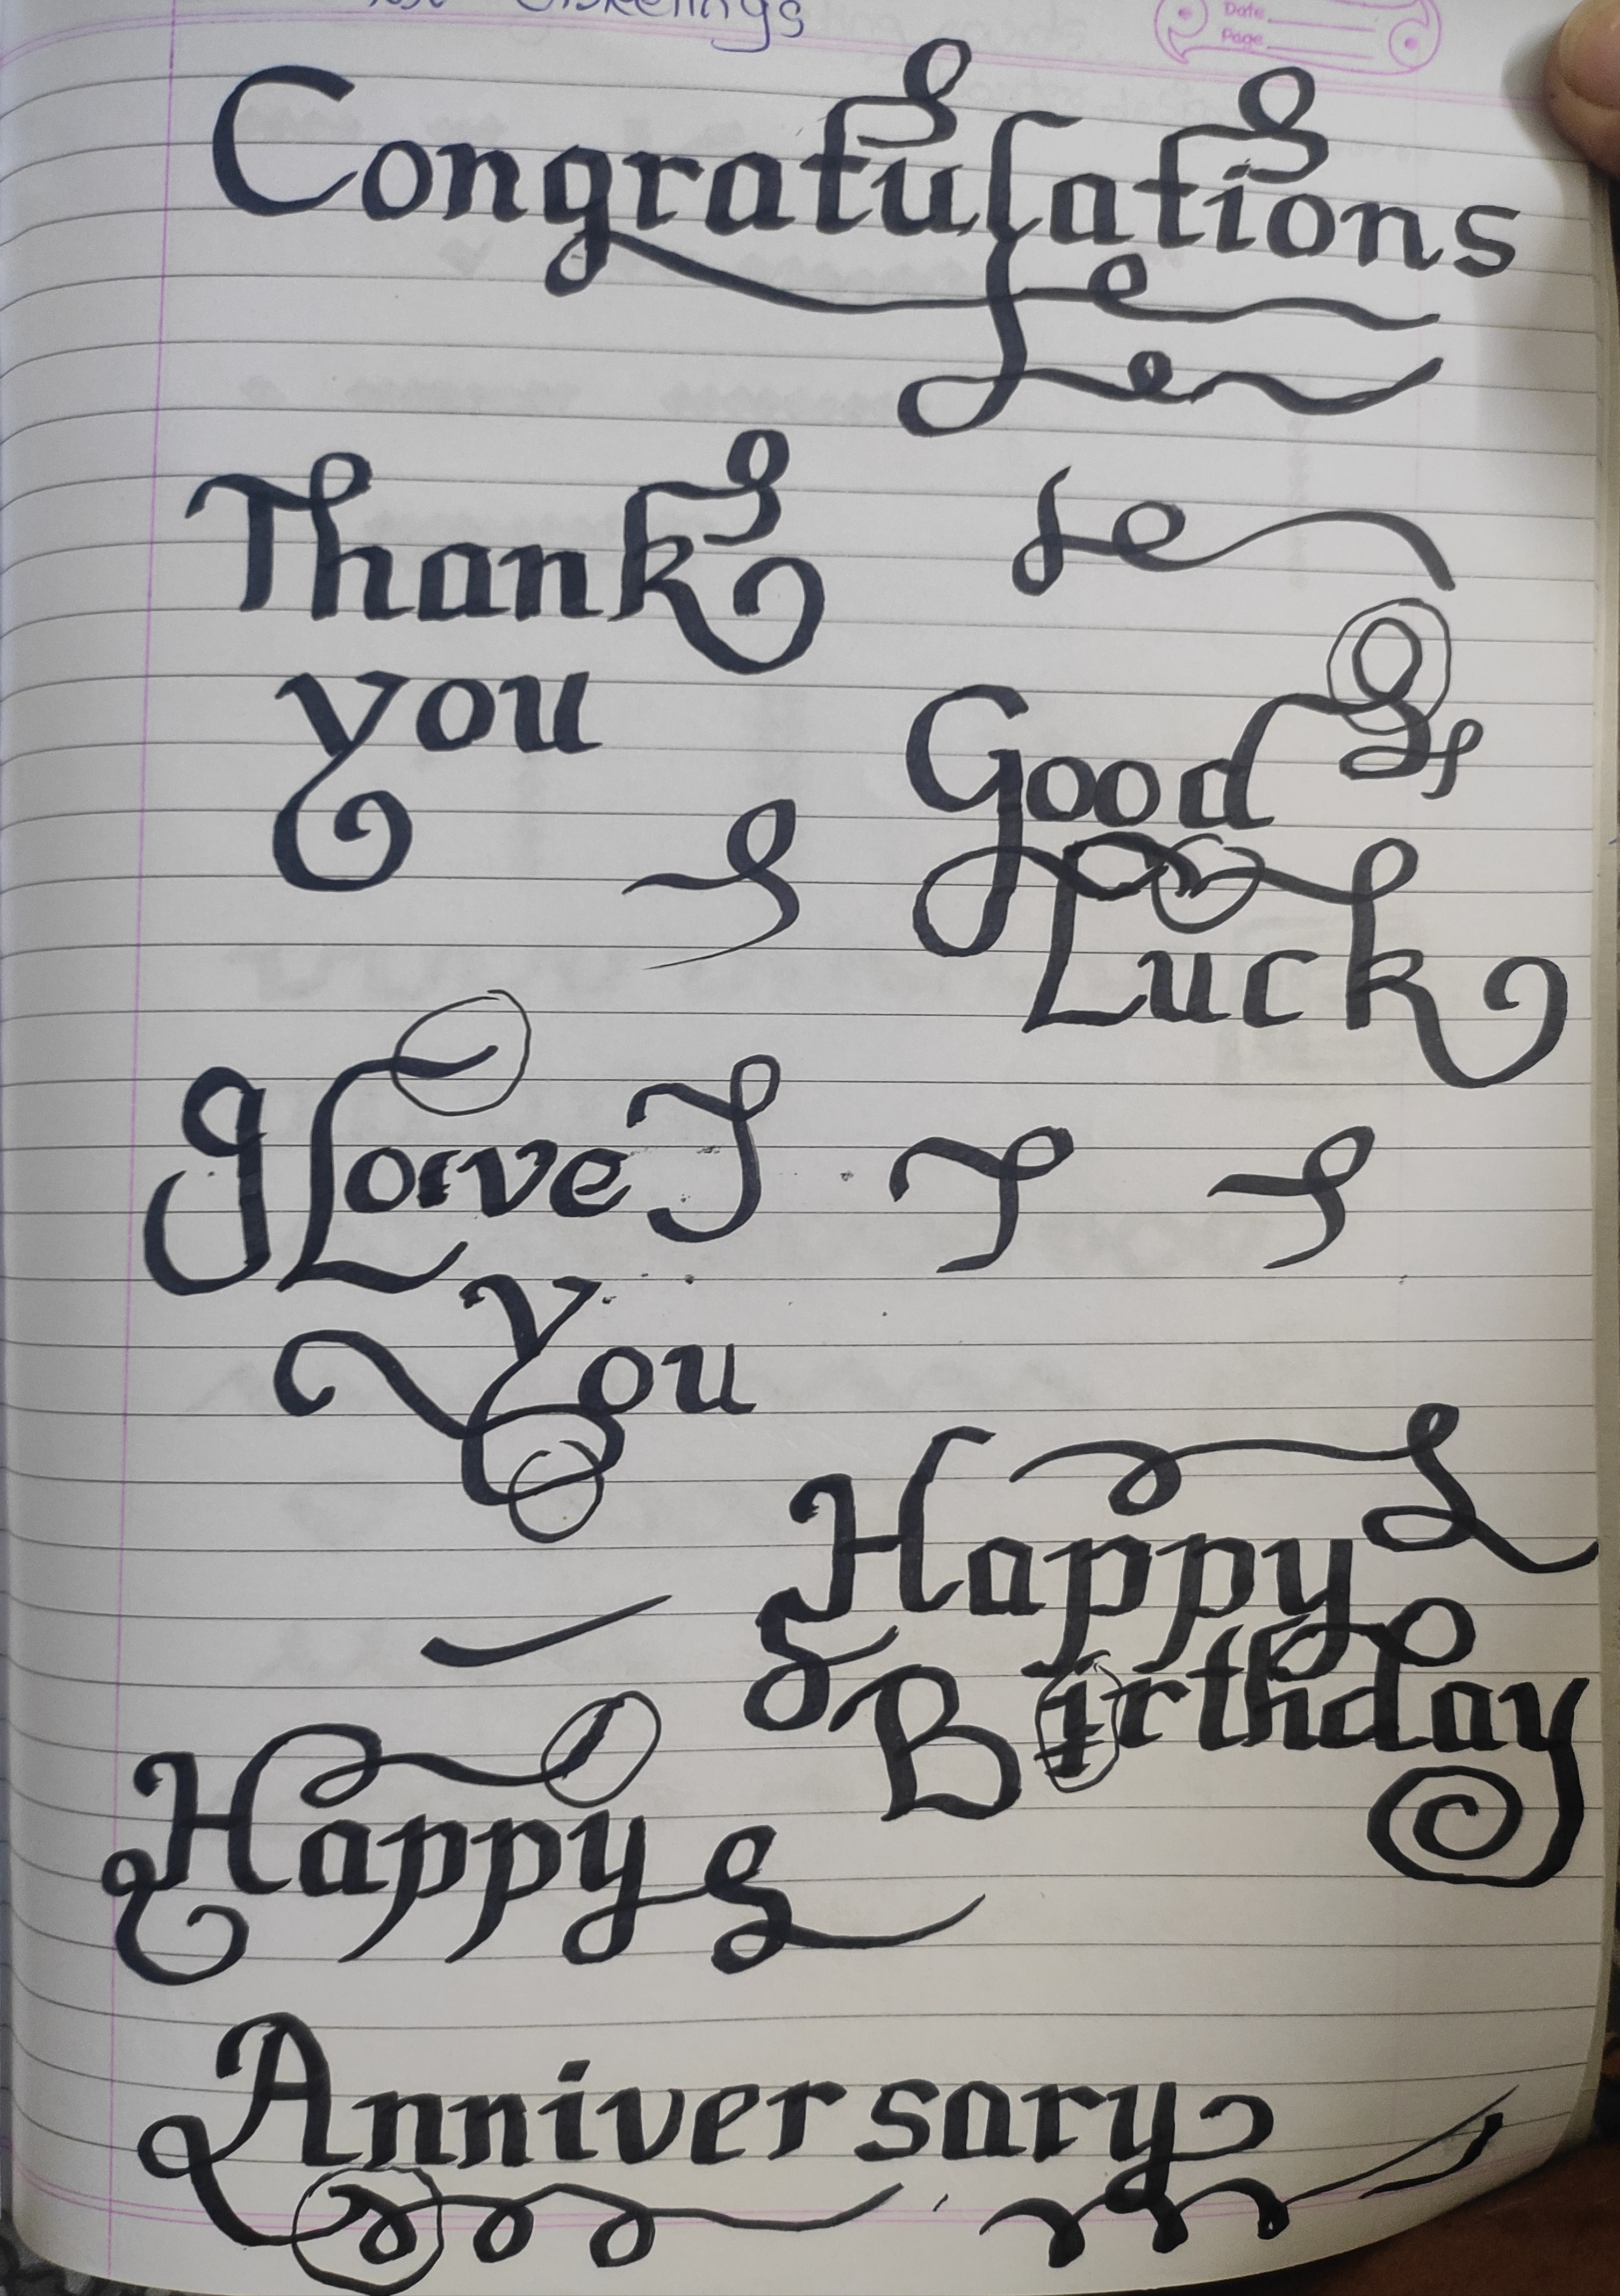 Date
Page
Congratulations
Thank
you
Good
Luck
I Love
You
Happy
Birthday
Happy
Anniversary